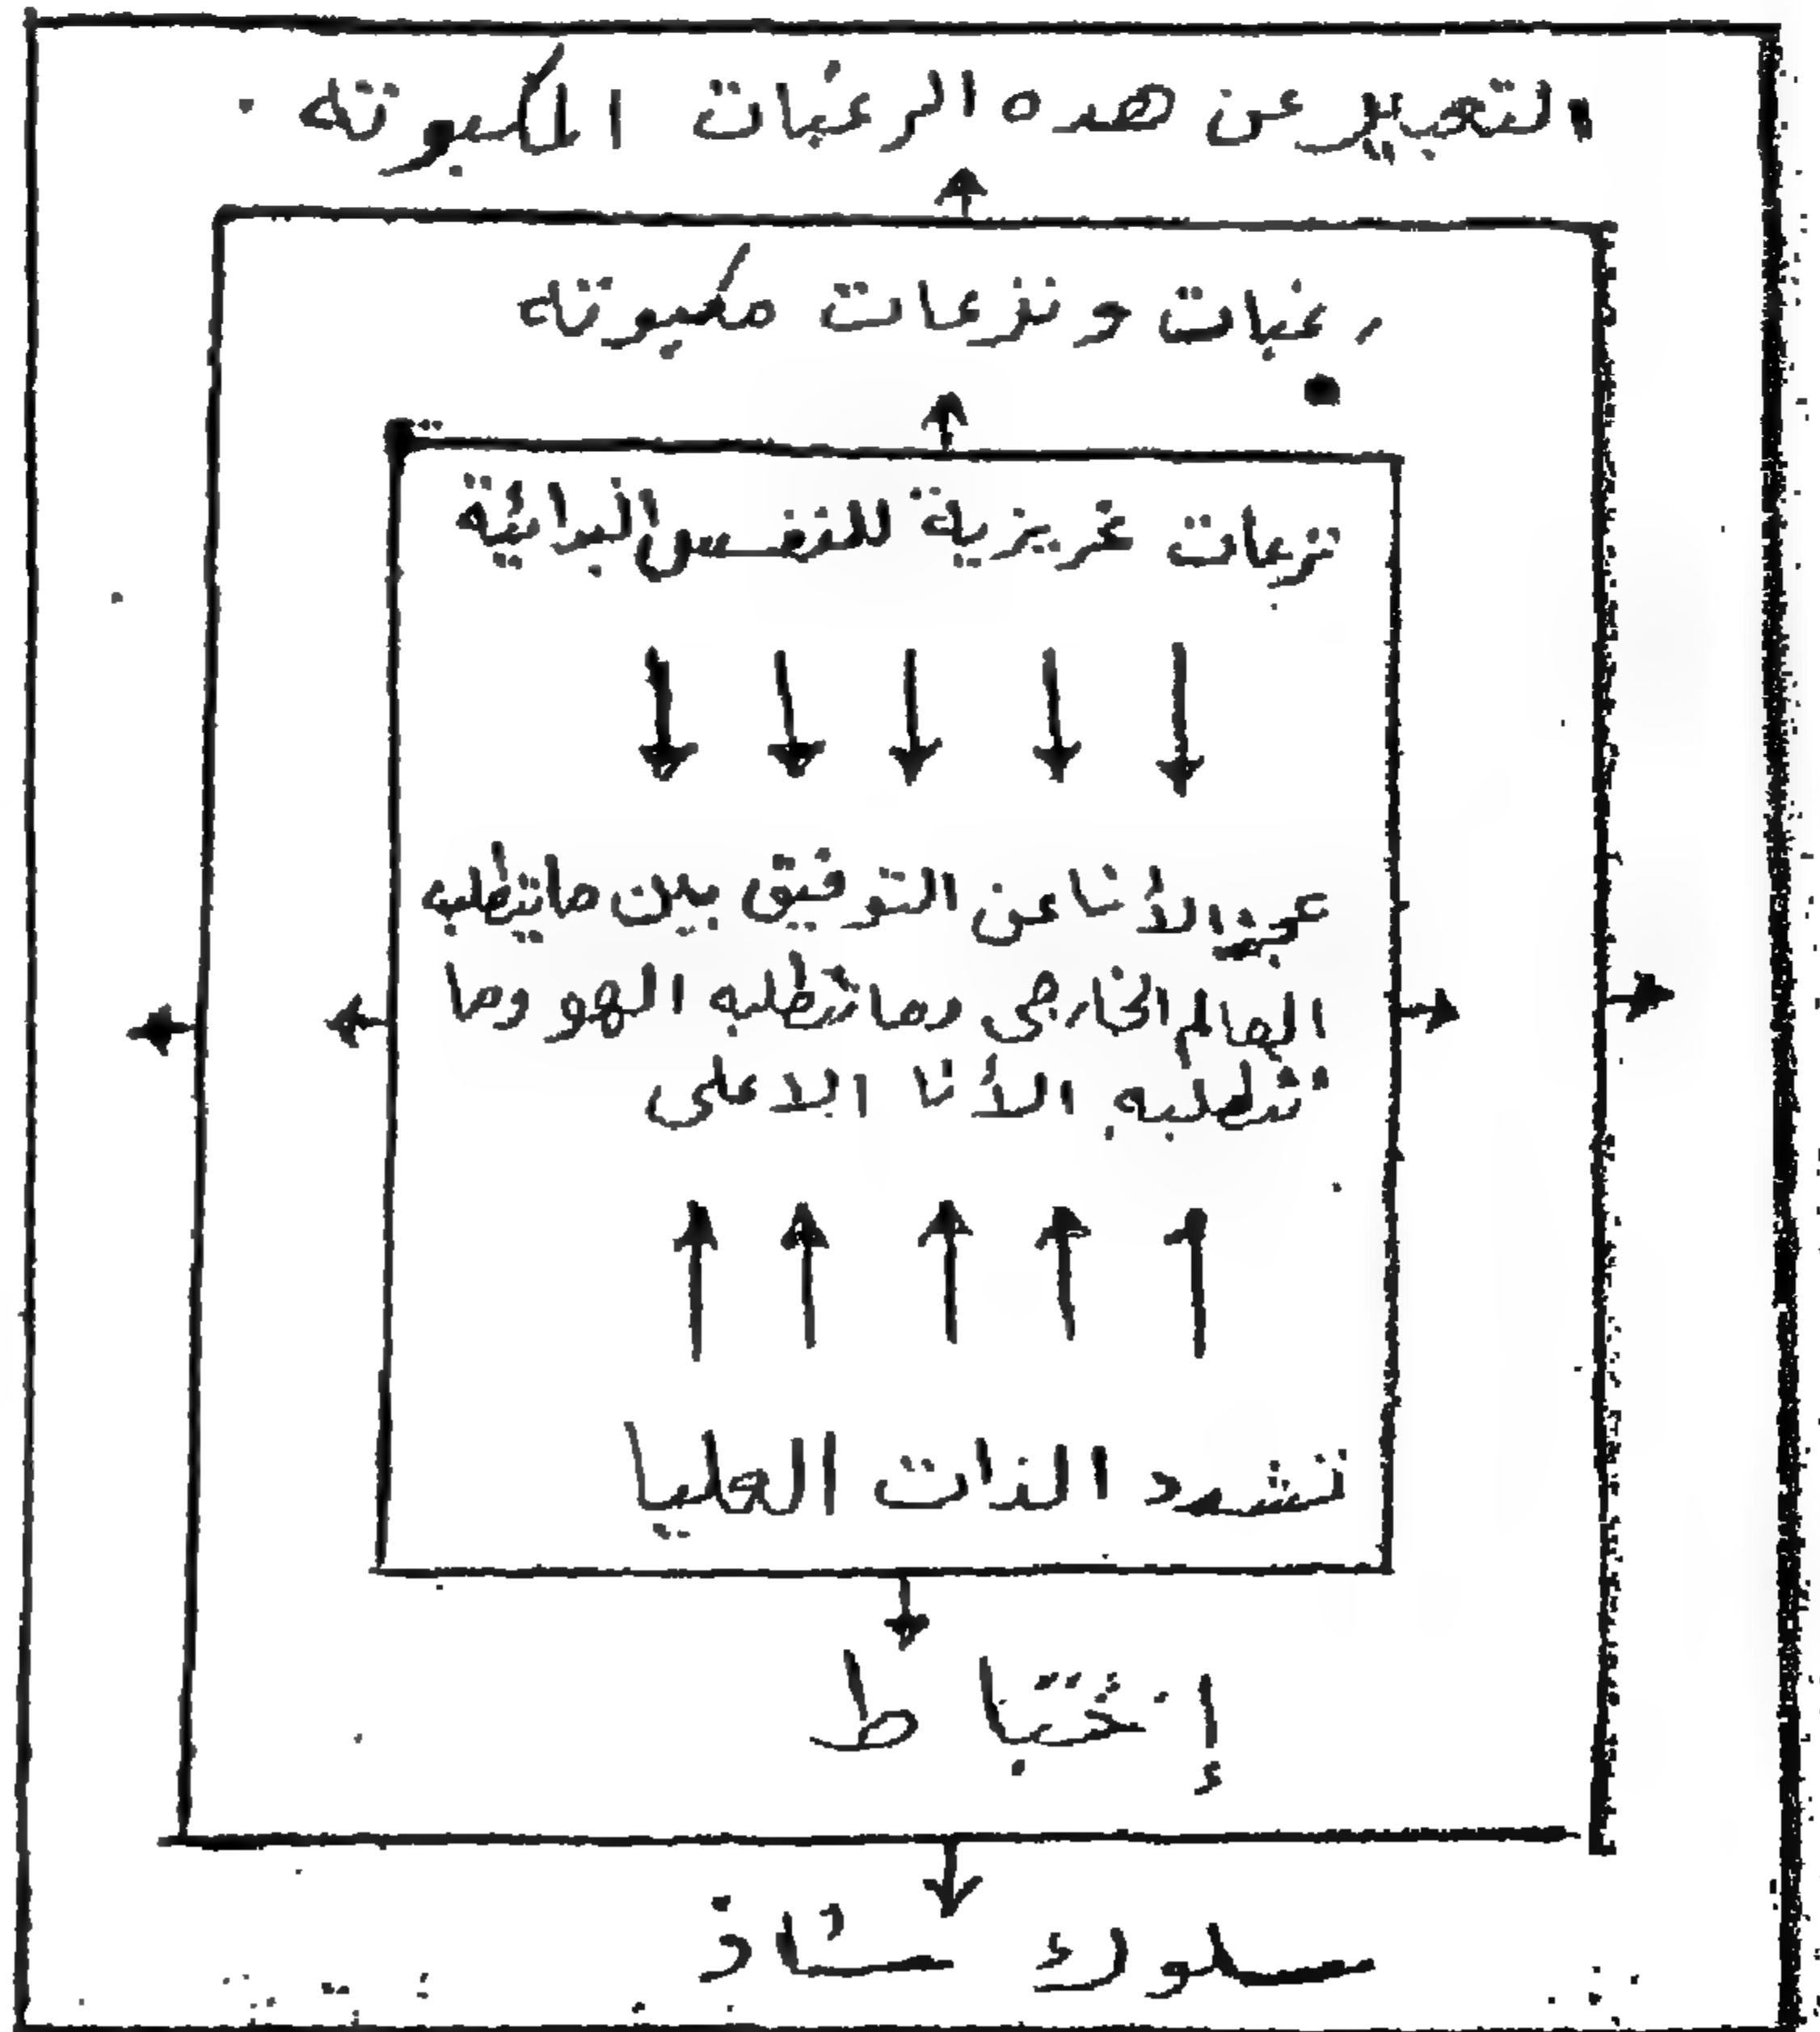 التعبير عن هذه الرغبات المكبوته .
رغبات ونزعات مكبوته
نزعات غريزية للنفس البدائية
عجز الأنا عن التوفيق بين ما يتطلبه
العالم الخارجى وما تتطلبه الهو وما
تتطلبه الأنا الاعلى
تشدد الذات العليا
إختباط
سلوك شاذ